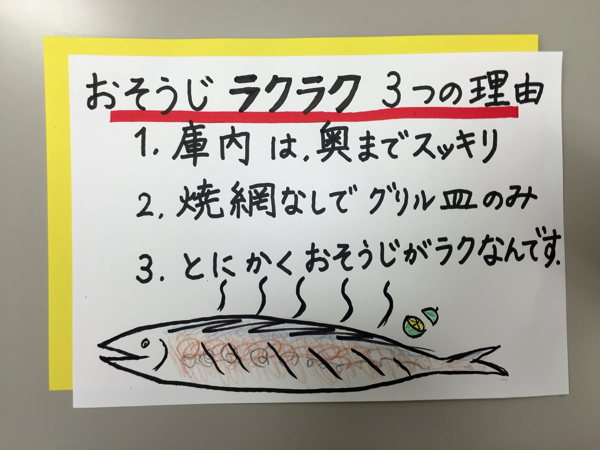 おそうじ ラクラク 3つの理由
1. 庫内は、奥までスッキリ
2. 焼網なしで グリル皿のみ
3. とにかくおそうじがラクなんです.